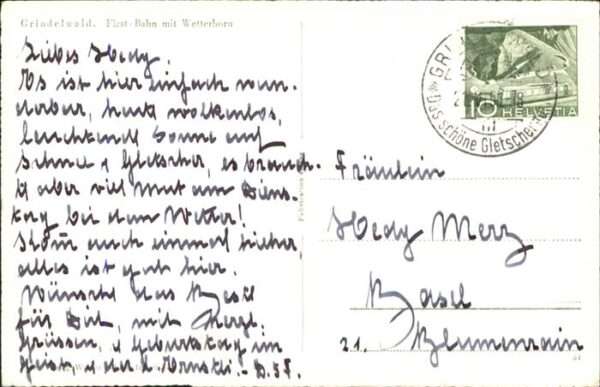 Grindelwald. First-Bahn mit Wetterhorn
Liebes Hedy,
Es ist hier einfach wun-
derbar, heute wolkenlos,
leuchtende Sonne auf
Schnee & Gletscher, es brauch-
t aber viel Mut am Diens-
tag bei dem Wetter!
Kom̅ auch einmal hieher,
alles ist gut hier.
Wünsche das Beste
für Dich, mit herzl.
Grüssen, & Geburtstag im
Geist, & der
HELVETIA
10
Das schöne Gletscher
Fräulein
Hedy Merz
Basel
21. Blumenrain